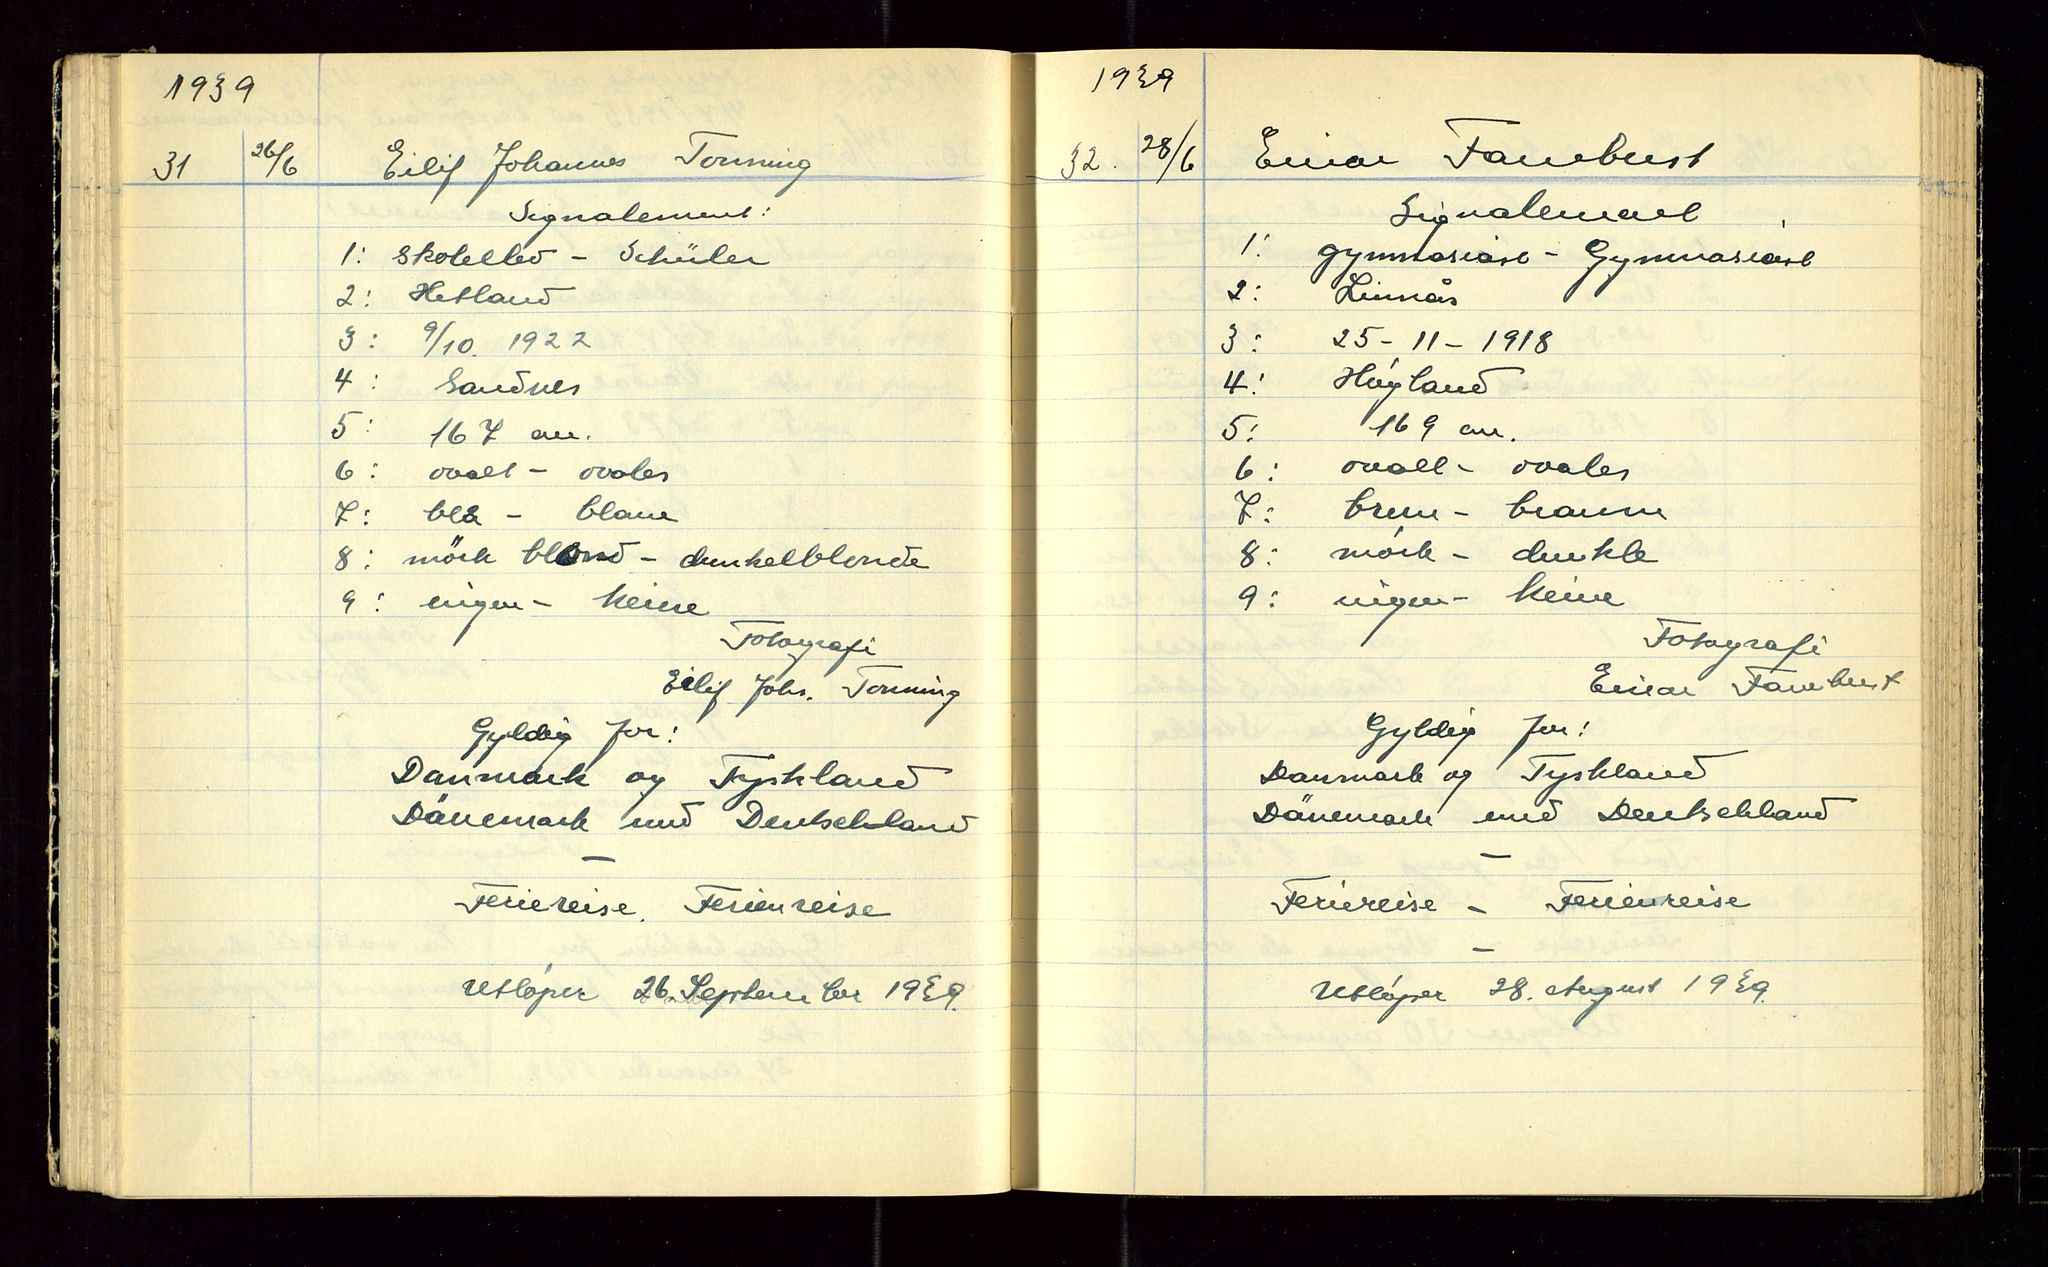 1939
31 26/6 Eilif Johannes Tonning
Signalement:
1: Skoleelev - Schüler
2: Hetland
3: 9/10. 1922
4: Sandnes
5: 167 cm.
6: ovalt - ovales
7: blå - blaue
8: mörk blond - dunkelblonde
9: ingen - keine
Fotografi
Eilif Johs. Tonning
Gyldig for:
Danmark og Tyskland
Dänemark und Deutschland
-
Feriereise. Ferienreise
Utløper 26. September 1939.
1939
32. 28/6 Einar
Signalement
1: gymnasiast - Gymnasiast
2:
3: 25-11-1918
4: Høyland
5: 169 cm.
6: ovalt - ovales
7: brune - braune
8: mørk - dunkle
9: ingen - keine
Fotografi
Einar
Gyldig for:
Danmark og Tyskland
Dänemark und Deutschland
-
Feriereise - Ferienreise
-
Utløper 28. August 1939.